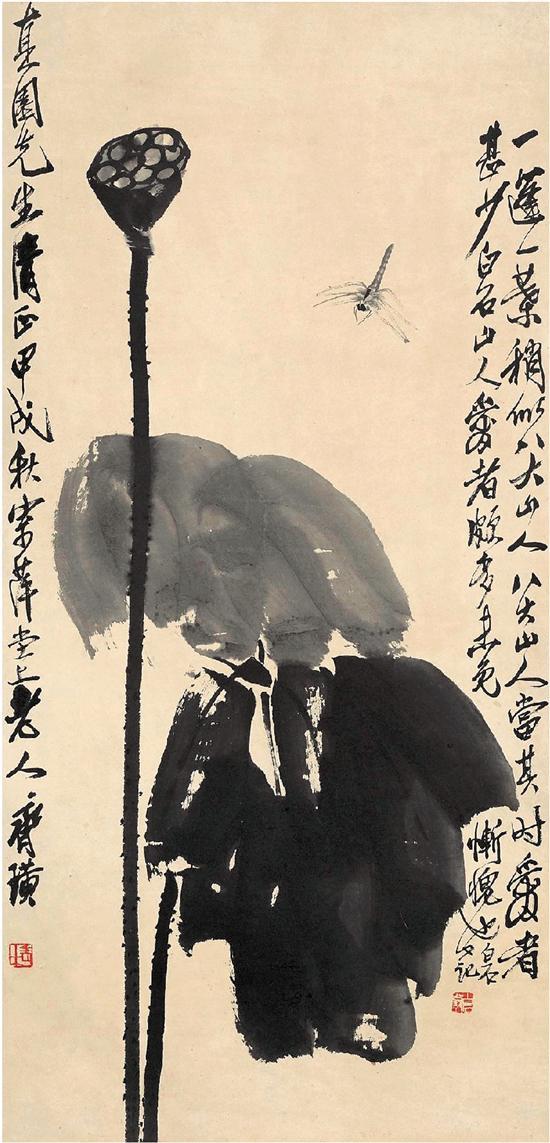 一蓬一葉稍似八大山人八大山人當其时愛者
甚少白石山人愛者頗多未免
慚愧也白石又記
園先生清正甲戌秋宋萍堂上老人齊璜